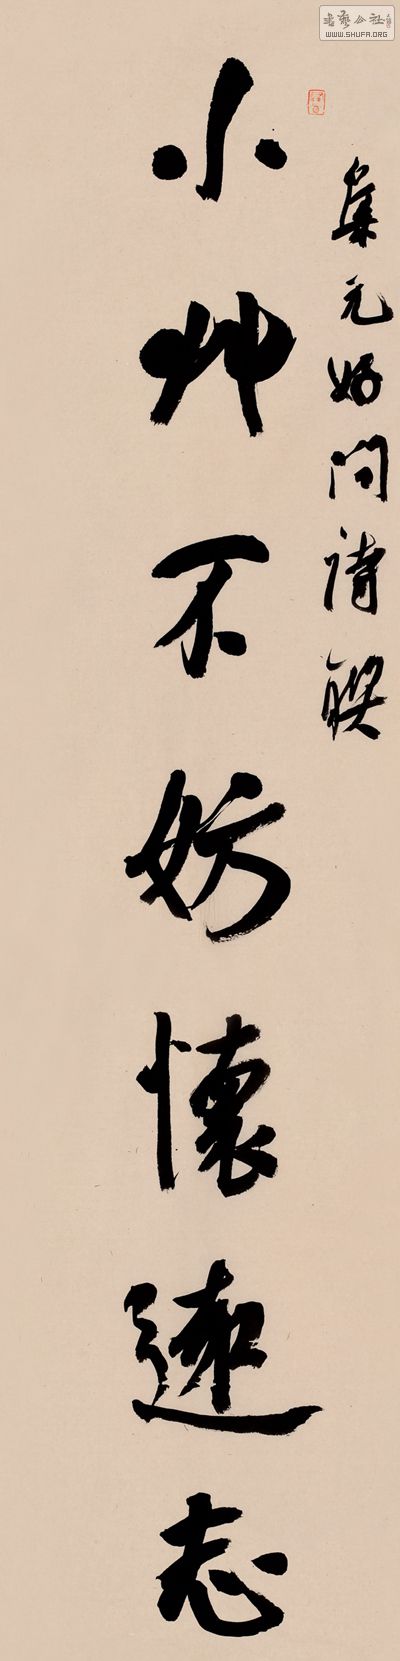 集元好问诗联
小艸不妨懷遠志
书艺公社
WWW.SHUFA.ORG